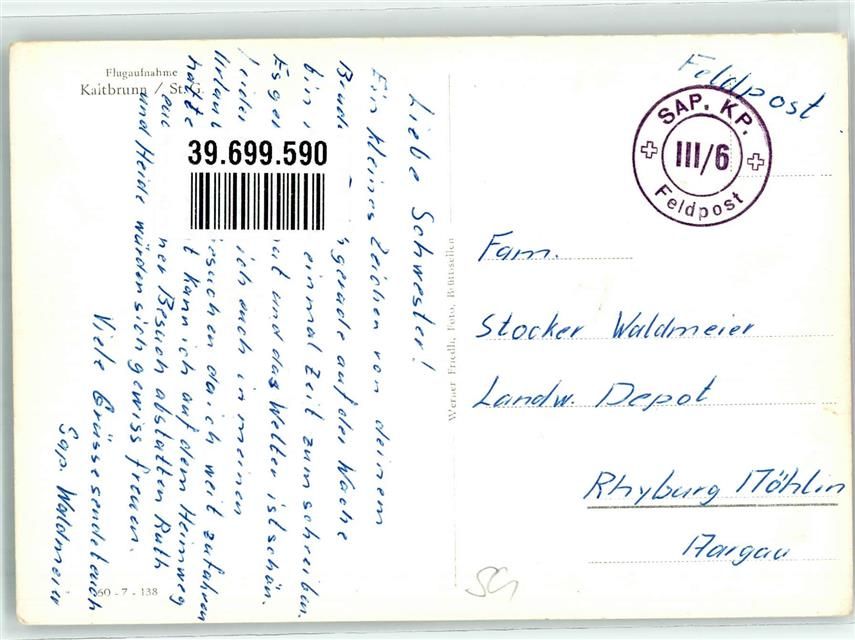 Flugaufnahme
Kaltbrunn / St. G.
Liebe Schwester!
Ein kleines Zeichen von deinem
gerade auf der Wache
bin i einmal Zeit zum schreiben.
Es ge ut und das Wetter ist schön.
leider ich auch in meinen
Urlaub esuchen da ich weit zufahren
hatte t kann ich auf dem Heimweg
euc ner Besuch abstatten Ruth
und Heide würden sich gewiss freuen.
Viele Grüsse sendet euch
Sap. Waldmeier
39.699.590
60 - 7 - 138
Werner Friedli, Foto, Brüttisellen
Feldpost
SAP. KP.
III/6
Feldpost
Fam.
Stocker Waldmeier
Landw. Depot
Rhyburg Möhlin
Aargau